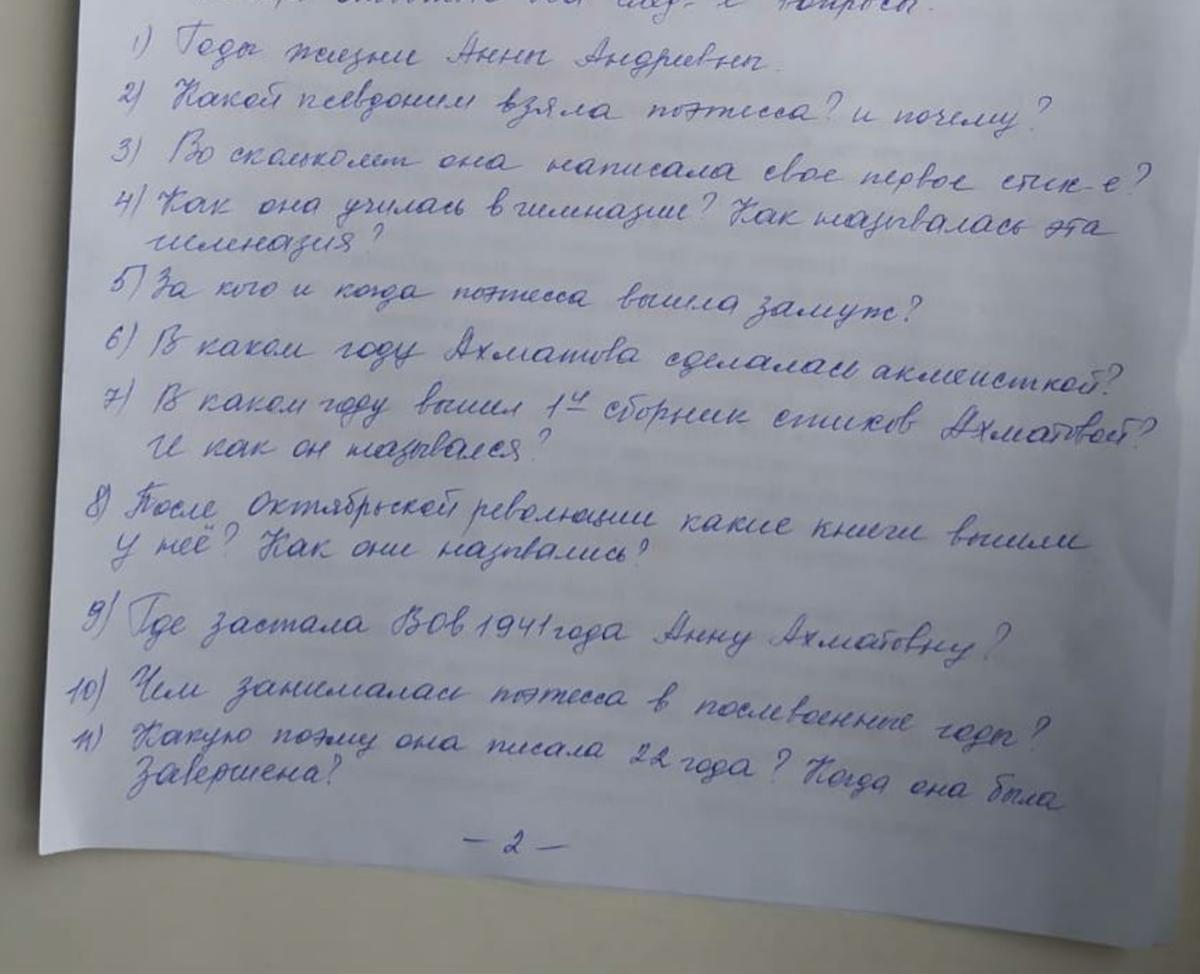 вопросы.
1) Годы жизни Анны Андревны.
2) Какой псевдоним взяла поэтесса? и почему?
3) Во сколько лет она написала свое первое стих-е?
4) Как она училась в гимназии? Как называлась эта
гимназия?
5) За кого и когда поэтесса вышла замуж?
6) В каком году Ахматова сделалась акмеисткой?
7) В каком году вышел 1й сборник стихов Ахматовой?
И как он назывался?
8) После Октябрьской революции какие книги вышли
у неё? Как они назывались?
9) Где застала ВОВ 1941 года Анну Ахматовну?
10) Чем занималась поэтесса в послевоенные годы?
11) Какую поэму она писала 22 года? Когда она была
завершена?
- 2 -